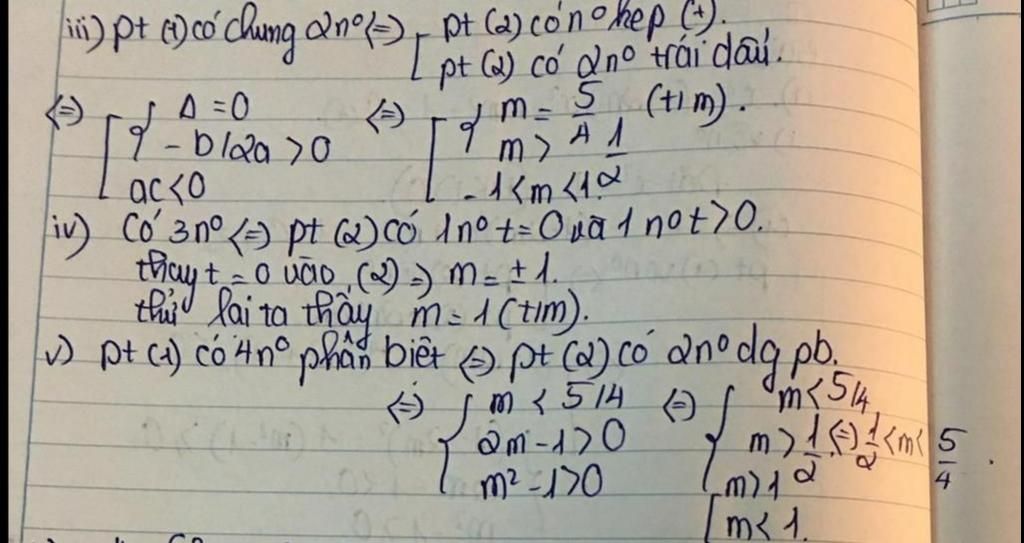 iii) pt (1) có chung 2n° <=> [ pt (2) có n° kép (+).
pt (2) có 2n° trái dấu.
<=> [ { Δ = 0 <=> [ { m = 5/4 (t/m).
-b/2a > 0 m > 1/2
ac < 0 -1 < m < 1.
iv) Có 3n° <=> pt (2) có 1n° t = 0 và 1 n° t > 0.
thay t = 0 vào (2) => m = ± 1.
thử lại ta thấy m = 1 (t/m).
v) pt (1) có 4n° phân biệt <=> pt (2) có 2n° dg pb.
<=> { m < 5/4 <=> { m < 5/4
2m - 1 > 0 m > 1/2 <=> 1/2 < m < 5/4.
m² - 1 > 0 [ m > 1
m < 1.